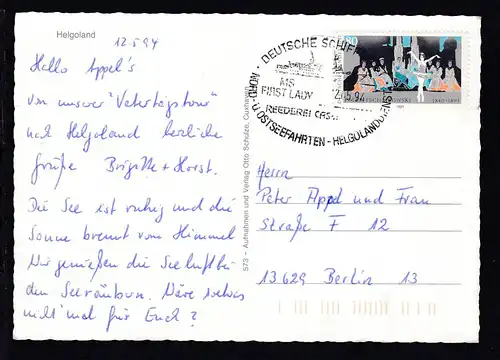 Helgoland
12.5.94
Hallo Appel's
von unserer "Vatertagstour"
nach Helgoland herzliche
Grüße Brigitte + Horst.
Die See ist ruhig und die
Sonne brennt vom Himmel
Wir genießen die Seeluft bei
den Seeräubern. Wäre sowas
nicht mal für Euch?
573 – Aufnahmen und Verlag Otto Schulze, Cuxhaven
DEUTSCHE SCHIFF
MS
FIRST LADY
REEDEREI CAS
NORD- u. OSTSEEFAHRTEN - HELGOLANDDIENST
80
Herrn
Peter Appel und Frau
Straße F 12
13629 Berlin 13